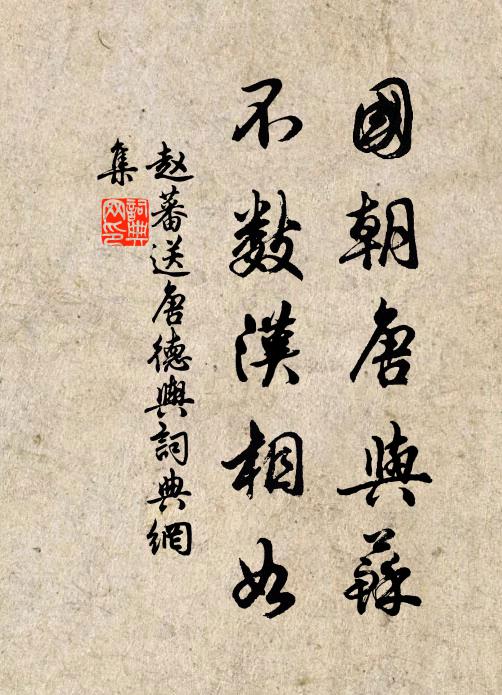 國朝唐與蘇
不數漢相如
赵蕃送唐德興詞典網
集
詞典網印